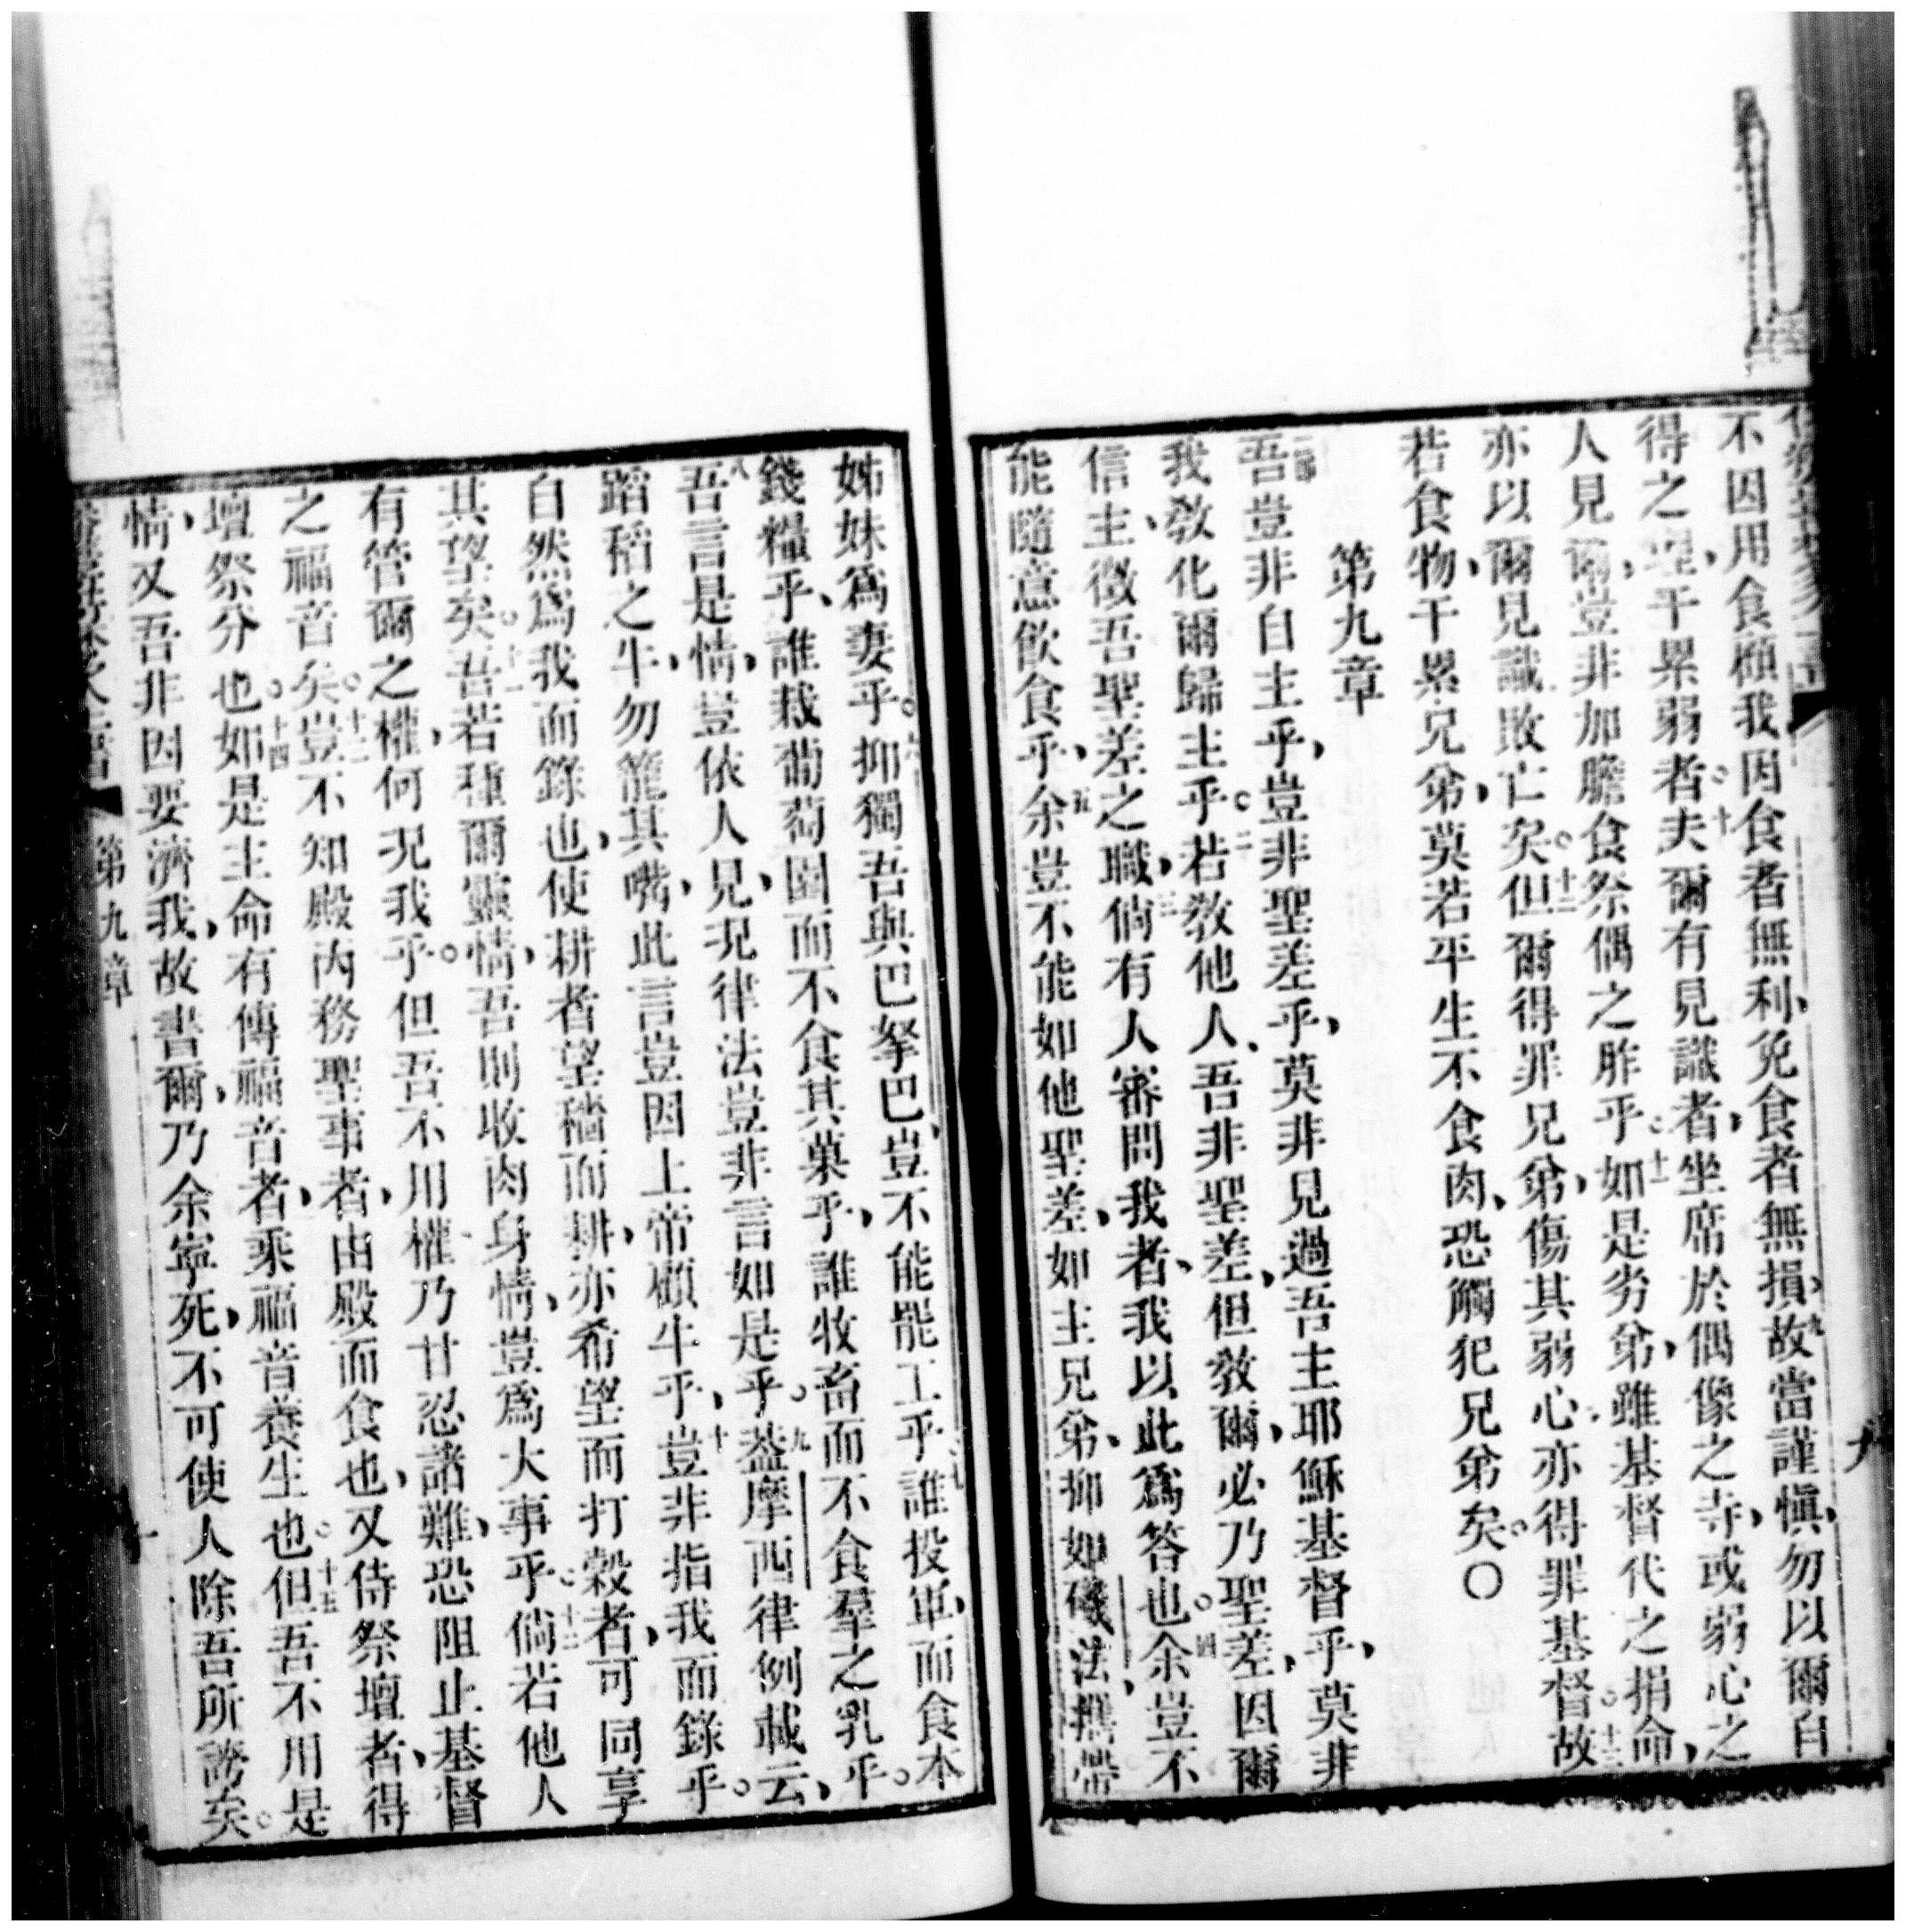 不因用食顧我因食者無利、免食者無損、九故當謹愼、勿以爾自
得之理、干累弱者。十夫爾有見識者、坐席於偶像之寺、或弱心之
人見爾、豈非加膽食祭偶之胙乎。十一如是劣弟、雖基督代之捐命、
亦以爾見識敗亡矣。十二但爾得罪兄弟、傷其弱心、亦得罪基督。十三故
若食物、干累兄弟、莫若平生不食肉、恐觸犯兄弟矣。〇
第九章
一節吾豈非自主乎、豈非聖差乎、莫非見過吾主耶穌基督乎、莫非
我教化爾歸主乎。二若教他人、吾非聖差、但教爾、必乃聖差、因爾
信主、徵吾聖差之職、三倘有人審問我者、我以此爲答也。四余豈不
能隨意飲食乎、五余豈不能如他聖差、如主兄弟、抑如磯法、攜帶
姊妹爲妻乎。六抑獨吾與巴拏巴、豈不能罷工乎。七誰投軍、而食本
錢糧乎、誰栽葡萄園而不食其菓乎、誰牧畜而不食羣之乳乎。
八吾言是情、豈依人見、現律法豈非言如是乎。九葢摩西律例載云、
蹈稻之牛、勿籠其嘴、此言豈因上帝顧牛乎、十豈非指我而錄乎。
自然爲我而錄也、使耕者望穡而耕、亦希望而打穀者、可同享
其望矣。十一吾若種爾靈情、吾則收肉身情、豈爲大事乎。十二倘若他人
有管爾之權、何況我乎。但吾不用權乃甘忍諸難、恐阻止基督
之福音矣。十三豈不知殿內務聖事者、由殿而食也、又侍祭壇者、得
壇祭分也。十四如是主命有傳福音者、乘福音養生也。十五但吾不用是
情、又吾非因要濟我、故書爾、乃余寧死、不可使人除吾所誇矣。
第九章